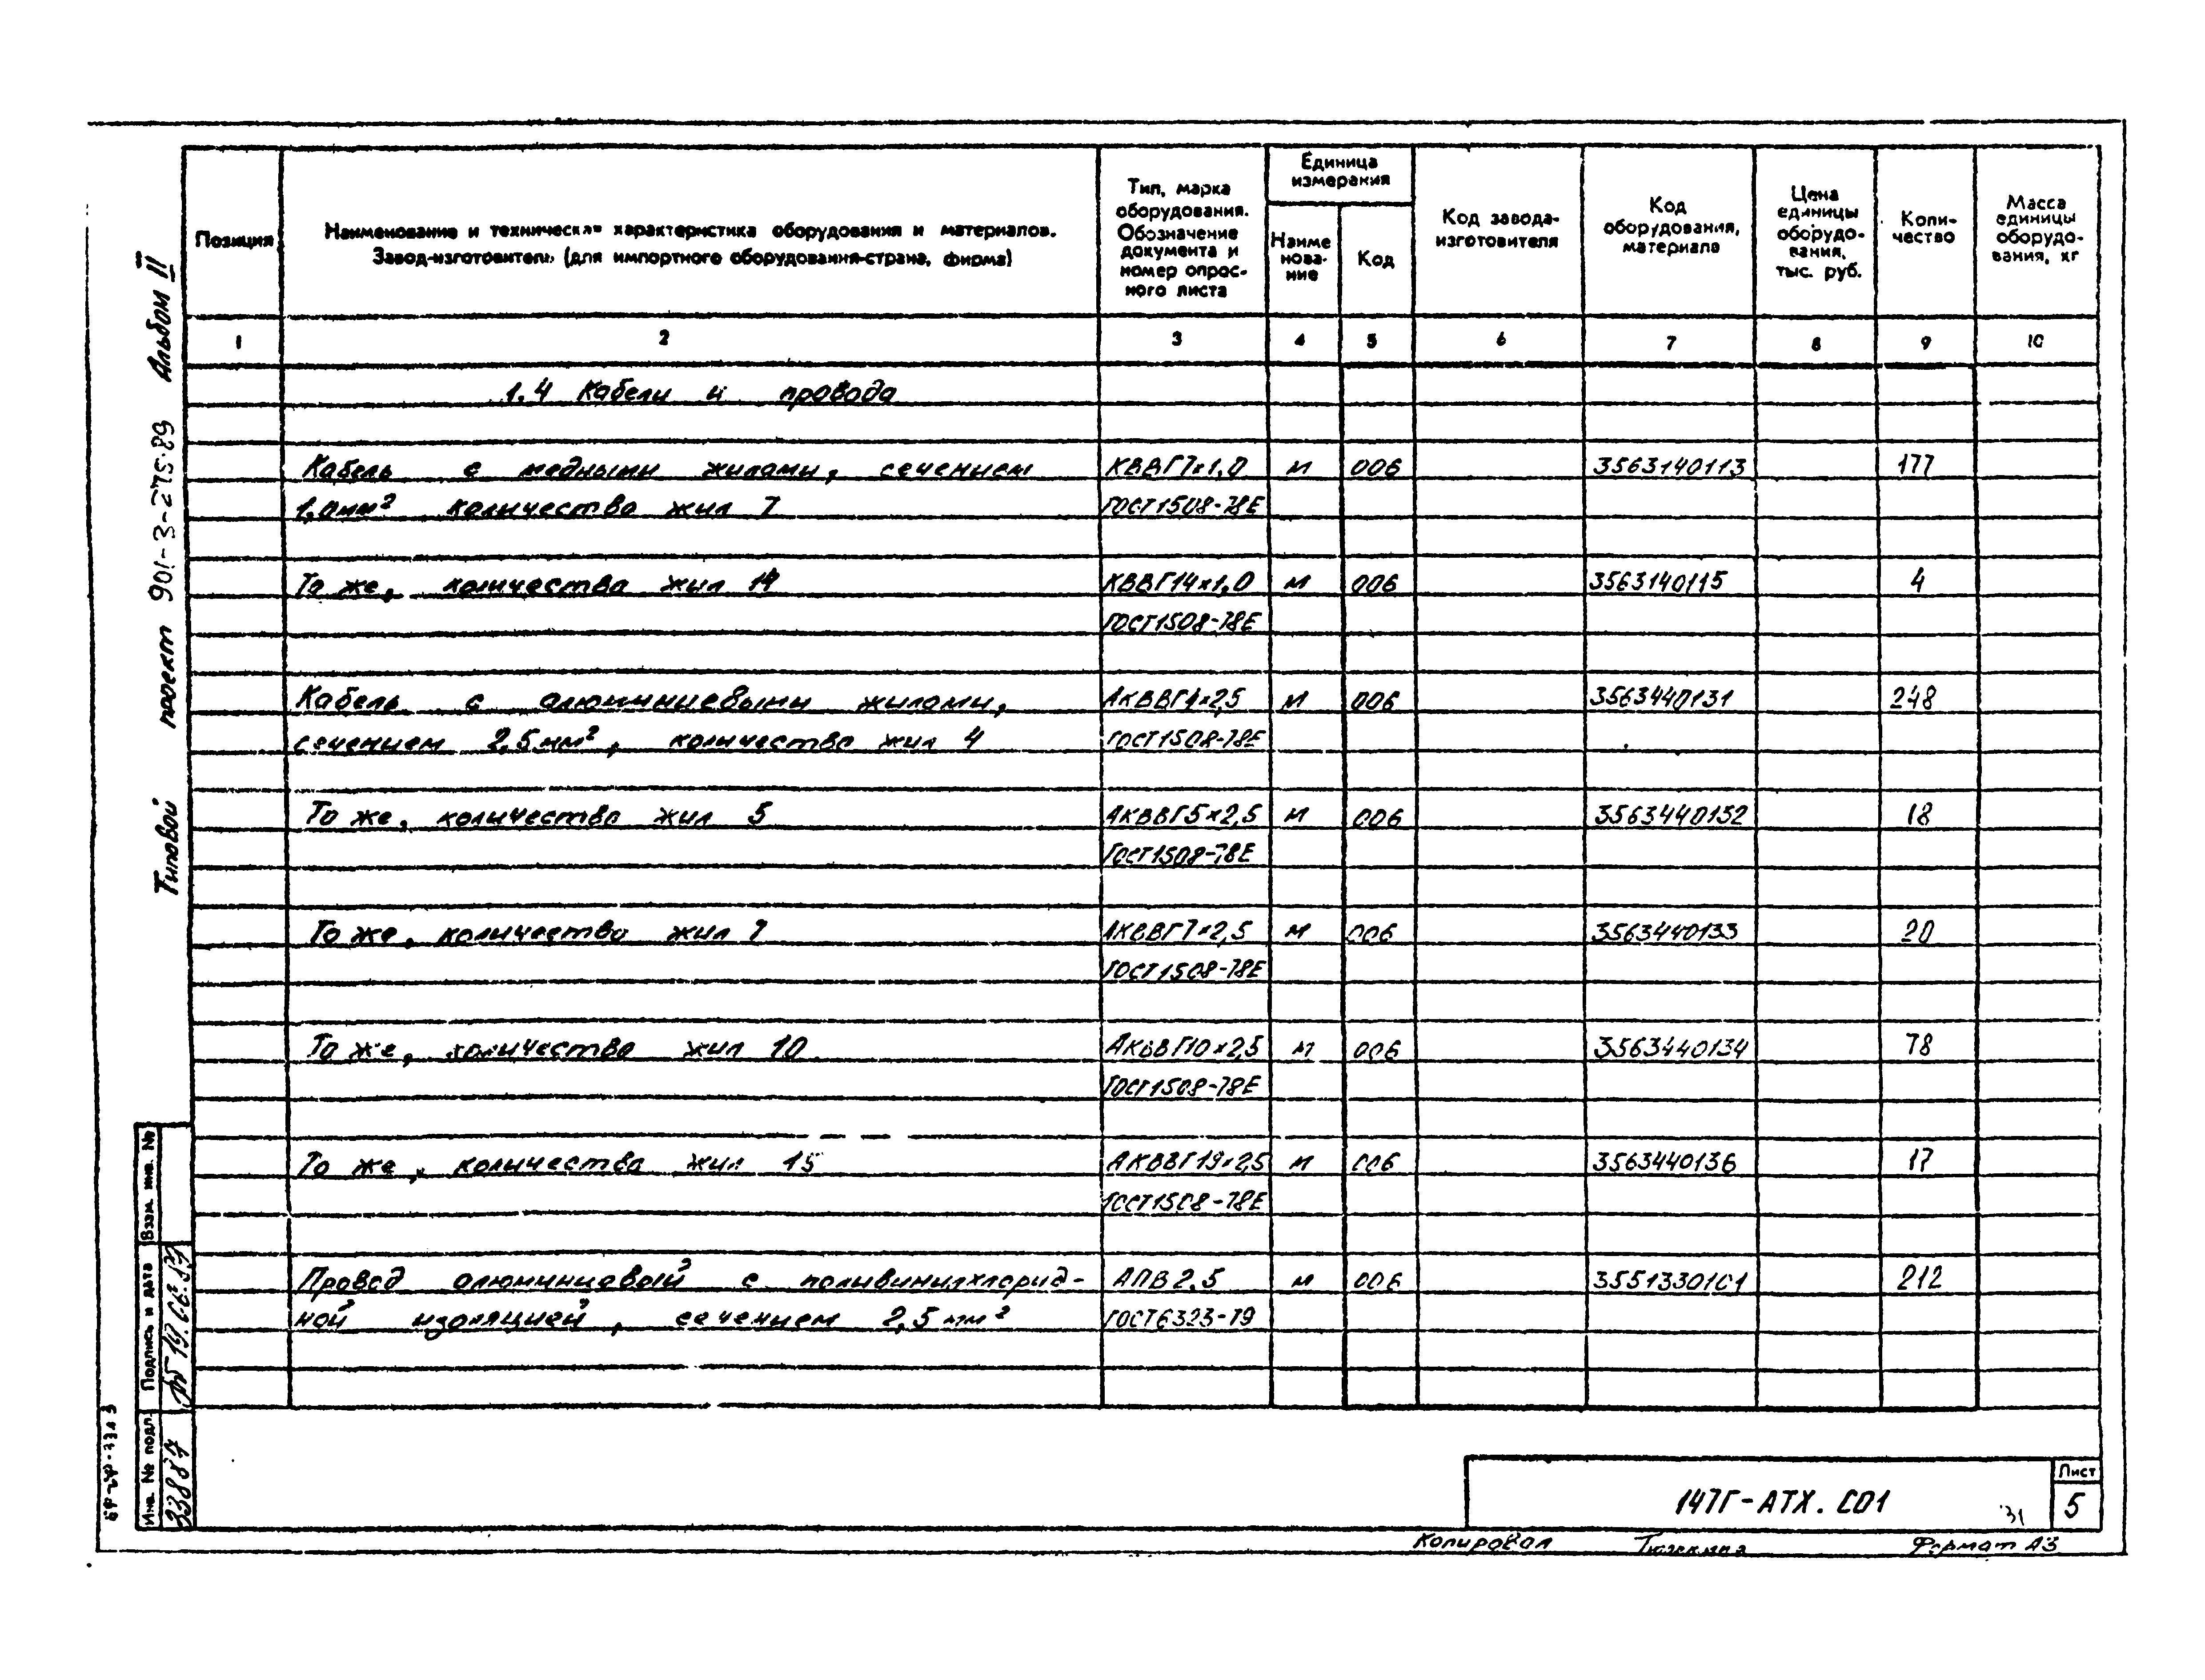 Позиция
Наименование и техническая характеристика оборудования и материалов.
Завод-изготовитель (для импортного оборудования-страна, фирма)
Тип, марка
оборудования.
Обозначение
документа и
номер опрос-
ного листа
Единица
измерения
Наиме
нова-
ние
Код
Код завода-
изготовителя
Код
оборудования,
материала
Цена
единицы
оборудо-
вания,
тыс. руб.
Коли-
чество
Масса
единицы
оборудо-
вания, кг
1 2 3 4 5 6 7 8 9 10
1.4 Кабели и провода
Кабель с медными жилами, сечением КВВГ7х1,0 м 006 3563140113 177
1,0мм² количество жил 7 ГОСТ1508-78Е
То же, количество жил 14 КВВГ14х1,0 м 006 3563140115 4
ГОСТ1508-78Е
Кабель с алюминиевыми жилами, АКВВГ4х2,5 м 006 3563440131 248
сечением 2,5мм², количество жил 4 ГОСТ1508-78Е
То же, количество жил 5 АКВВГ5х2,5 м 006 3563440132 18
ГОСТ1508-78Е
То же, количество жил 7 АКВВГ7х2,5 м 006 3563440133 20
ГОСТ1508-78Е
То же, количество жил 10 АКВВГ10х2,5 м 006 3563440134 78
ГОСТ1508-78Е
То же, количество жил 15 АКВВГ19х2,5 м 006 3563440136 17
ГОСТ1508-78Е
Провод алюминиевый с поливинилхлорид- АПВ 2,5 м 006 3551330101 212
ной изоляцией, сечением 2,5мм² ГОСТ6323-79
Типовой проект 901-3-275.89 Альбом II
Взам. инв. №
Подпись и дата
Инв. № подл.
33887
147Г-АТХ.СО1
31
Лист
5
Копировал
Формат А3